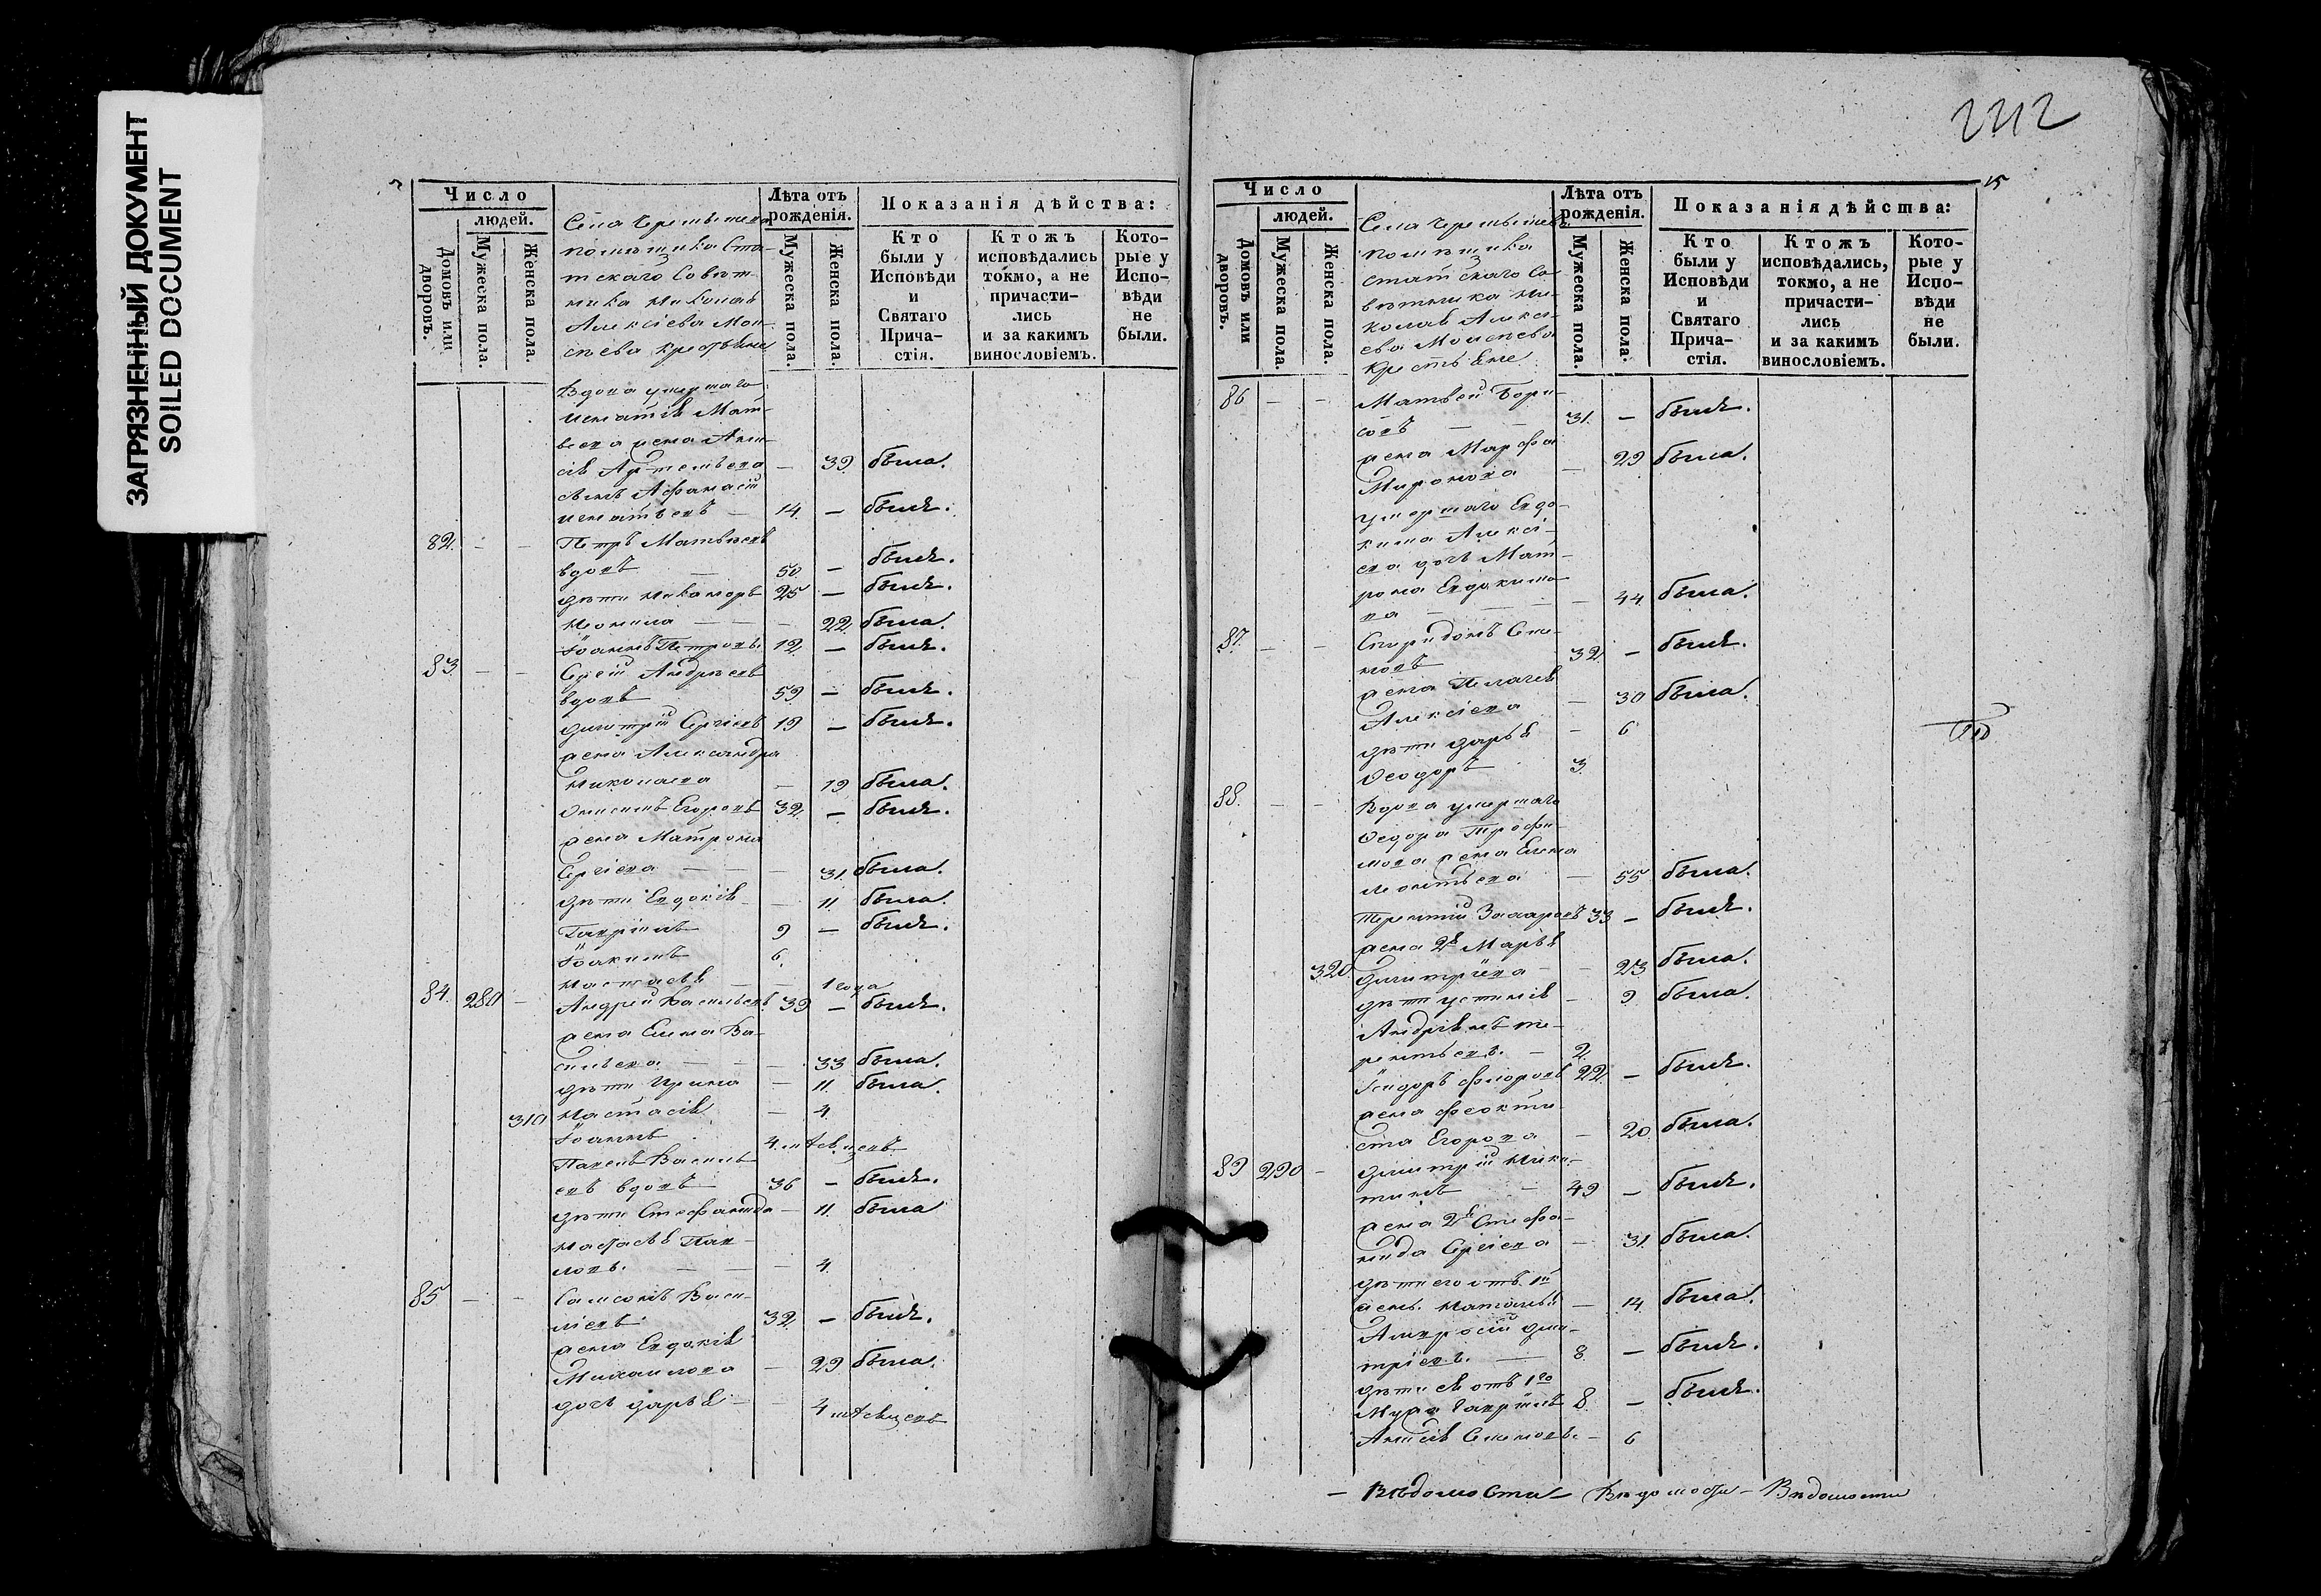 ЗАГРЯЗНЕННЫЙ ДОКУМЕНТ
SOILED DOCUMENT
Число
людей.
Домовъ или дворовъ.
Мужеска пола.
Женска пола.
помѣщика Ста-
тскаго Совѣт-
ника Николая
Алексѣева Мои-
сѣева крестьяне
Лѣта отъ рожденія.
Мужеска пола.
Женска пола.
Показанія дѣйства:
Кто были у Исповѣди и Святаго Прича-стія.
Ктожъ исповѣдались токмо, а не причасти-лись и за какимъ винословіемъ.
Кото-рые у Испо-вѣди не были.
Вдова умершаго
Игнатія Мат-
вѣева жена Ани-
сія Артемьева — 39 была.
сынъ Афанасій
Игнатьевъ — 14 — былъ.
82. — — Петръ Матвѣевъ
вдовъ — 50. — былъ.
дѣти Никаноръ 25 — былъ.
Неонила — — — 22. была.
Іоаннъ Петровъ. 12 — былъ.
83. — — Сергій Андреевъ
вдовъ 59 — былъ.
Дмитрій Сергіевъ 19 — былъ.
жена Александра
Николаева — 19 была.
Онисимъ Егоровъ 32. — былъ.
жена Матрона
Сергіева — — — 31. была.
дѣти Евдокія — 11. была.
Гавріилъ 9 — былъ.
Іоакимъ 6.
Настасья — — 1 года
84. 280 — Андрей Васильевъ. 39 — былъ.
жена Елена Ва-
сильева — — — 33 была.
дѣти Ирина — 11 была.
310 Настасія — 4
Іоаннъ 4 мѣсяцевъ
Павелъ Василь-
евъ вдовъ — 36 — былъ.
дѣти Стефанида — 11. была
Настасья Пав-
лова. — — — 4.
85 — — Самсонъ Васи-
ліевъ 32. — былъ.
жена Евдокія
Михаилова — 29 была.
дочь Дарья — — 4 мѣсяцевъ
2212
15
Число
людей.
Домовъ или дворовъ.
Мужеска пола.
Женска пола.
помѣщика
статскаго Со-
вѣтника Ни-
колая Алексѣ-
ева Моисѣева
крестьяне
Лѣта отъ рожденія.
Мужеска пола.
Женска пола.
Показанія дѣйства:
Кто были у Исповѣди и Святаго Прича-стія.
Ктожъ исповѣдались, токмо, а не причасти-лись и за какимъ винословіемъ.
Кото-рые у Испо-вѣди не были.
86 — — Матвѣй Бори-
совъ — — 31. — былъ.
жена Марфа
Миронова — 29 была.
умершаго Евдо-
кима Алексі-
ева дочь Мат-
рона Евдокимо-
ва — — — — 44. была.
87. — — Спиридонъ Семе-
новъ 32. — былъ.
жена Пелагея
Алексіева — 30 была.
дѣти Дарья — 6
Ѳеодоръ 3.
88. — — Вдова умершаго
Ѳедора Трофи-
мова жена Елена
Леонтьева — 55 была.
Терентій Захаровъ 33 — былъ.
жена 2я Марья
320. Дмитріева — — 23 была.
дѣти Устинія — 9 была.
Андріянъ Те-
рентьевъ. — 2.
Исидоръ Фроловъ 22. — былъ.
жена Феокти-
ста Егорова — 20. была.
89 290 — Дмитрій Ники-
тинъ — 49 — былъ.
жена 2я Стефа-
нида Сергіева — 31. была.
дѣти его отъ 1й
жены. Наталья — 14 была.
Амвросій Дми-
тріевъ. — 8. — былъ.
дѣти ея отъ 1го
мужа Гавріилъ 8. — былъ.
Анисія Семеновы. — 6
— Вѣдомости — Вѣдомости — Вѣдомости